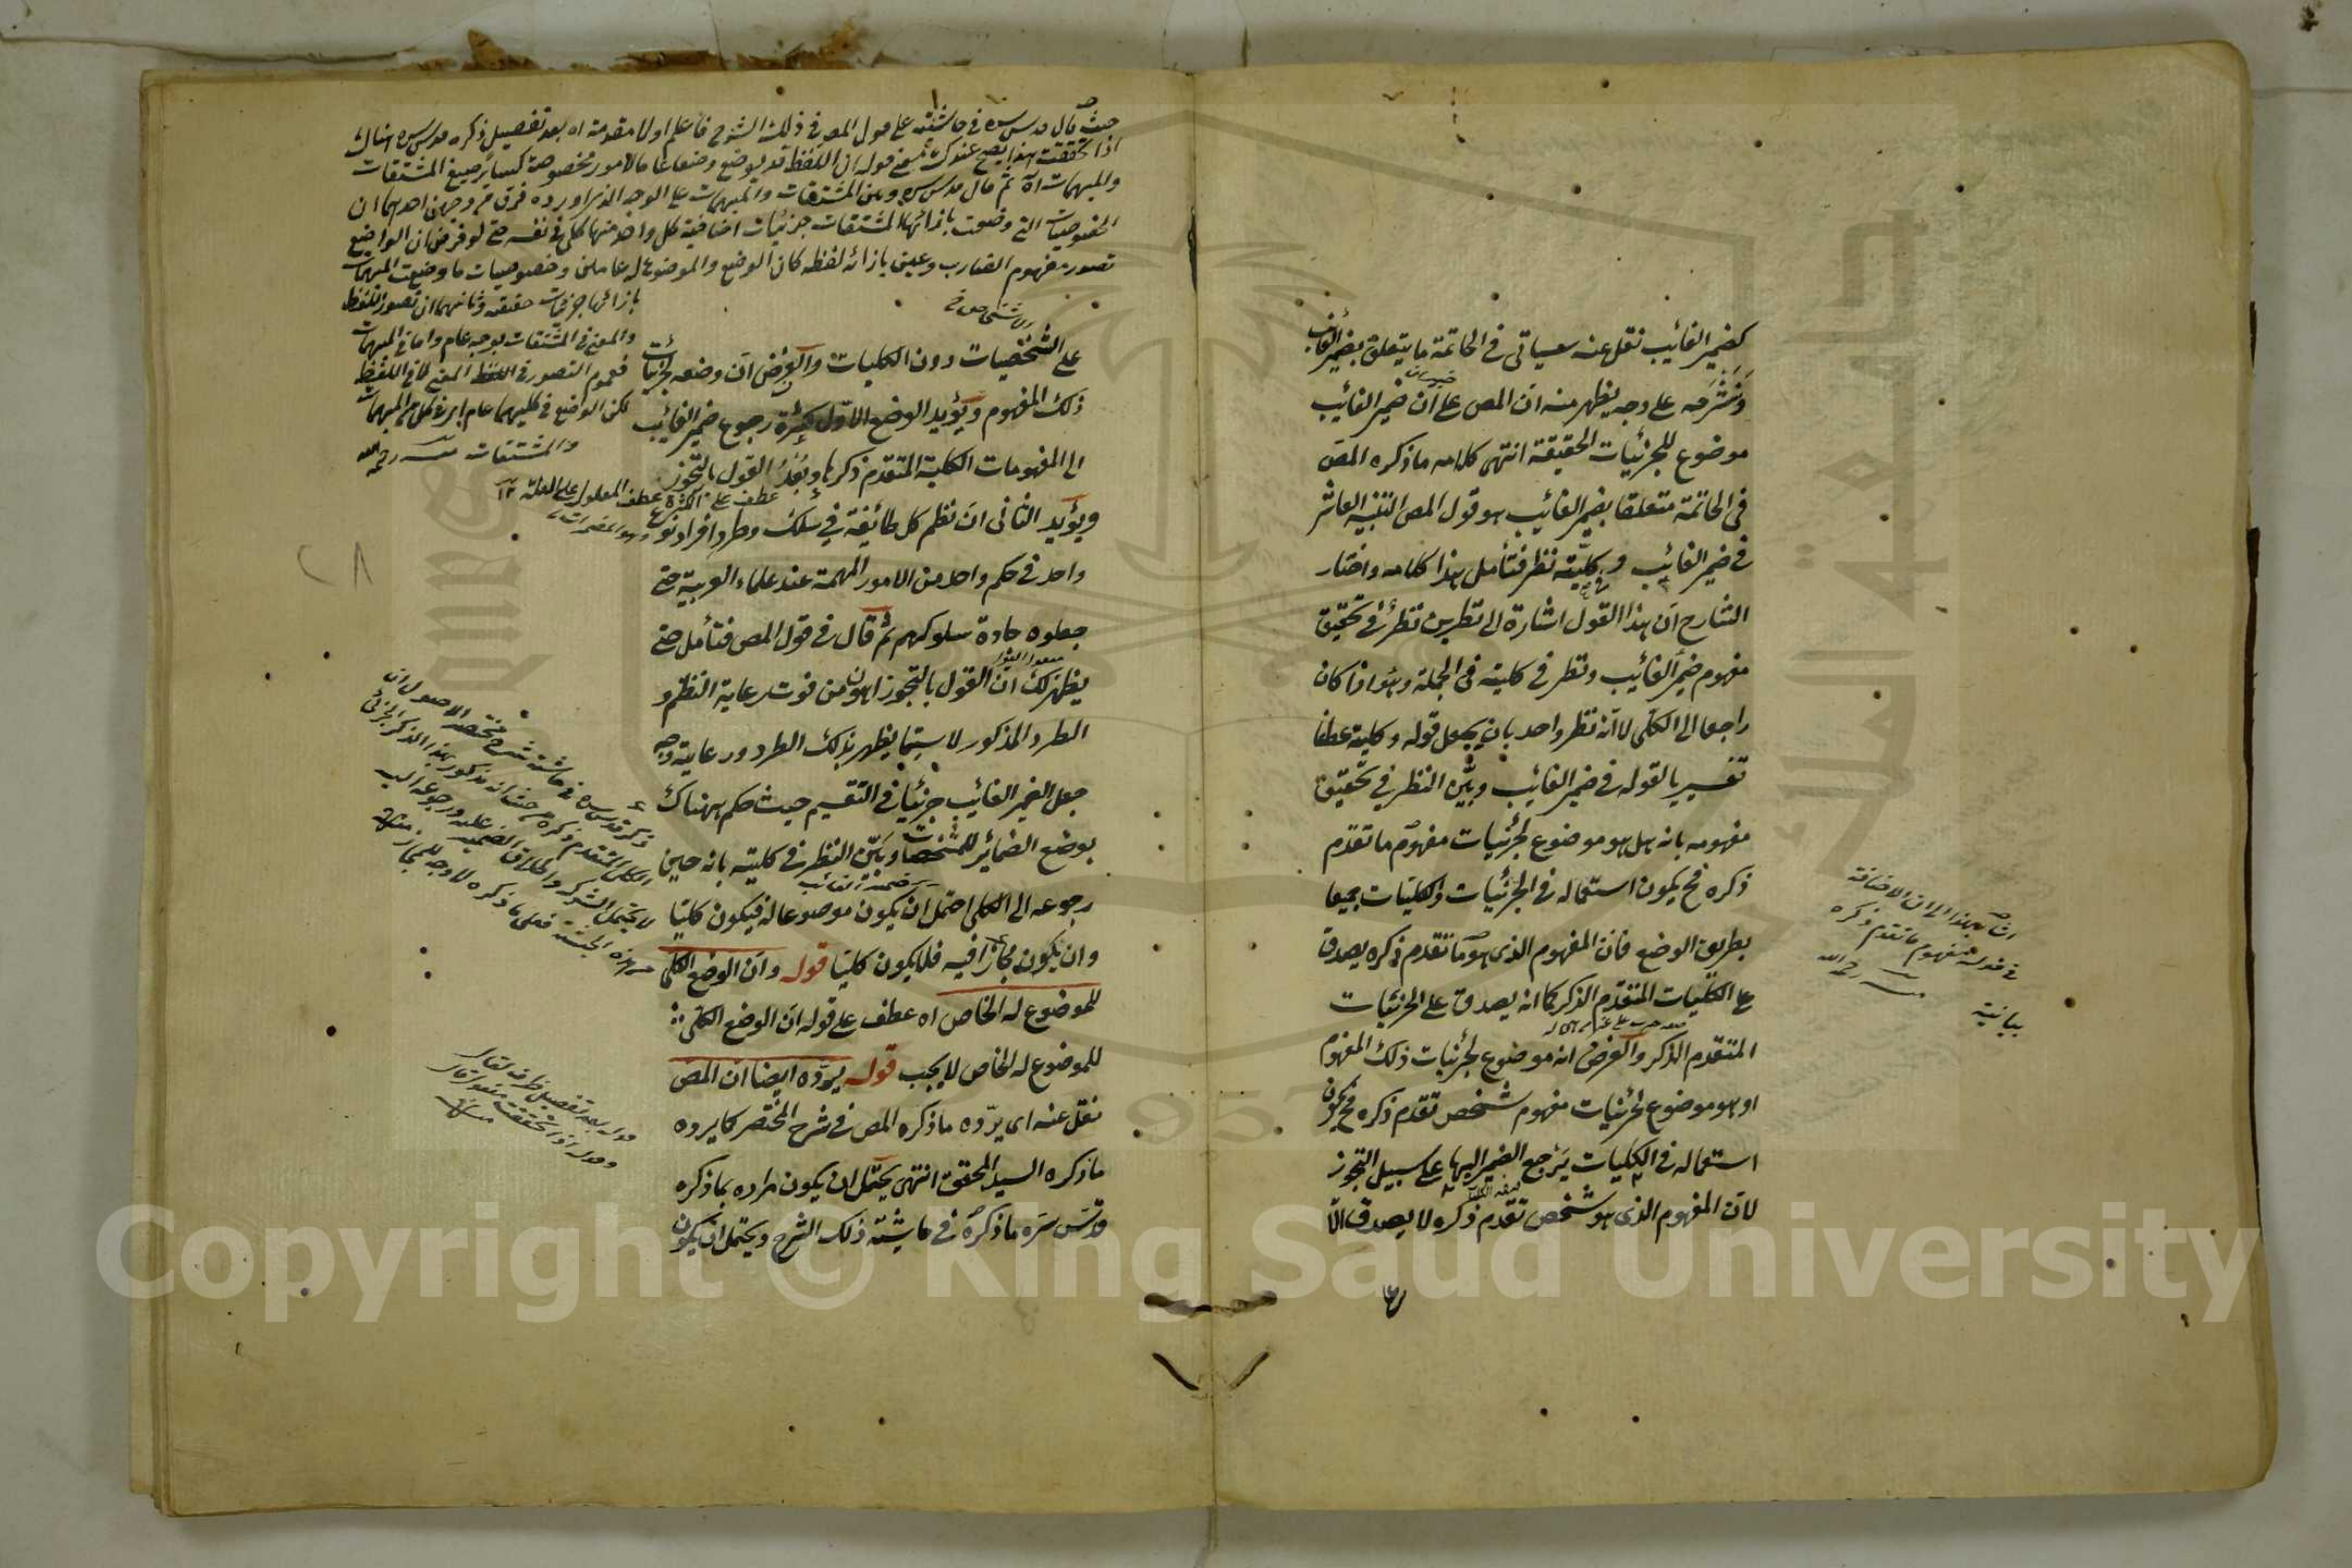 كضمير الغائب نقل عنه سيأتى فى الخاتمة ما يتعلق بضمير الغائب
ونشرحه على وجه يظهر منه ان المص على ان ضمير الغائب
موضوع للجزئيات الحقيقة انتهى كلامه ما ذكره المص
فى الخاتمة متعلقا بضمير الغائب هو قول المص التنبيه العاشر
فى ضمير الغائب وكليته نظر فتأمل هذا كلامه واختار
الشارح ان هذا القول اشارة الى نظرين نظر فى تحقيق
مفهوم ضمير الغائب ونظر فى كليته فى الجملة وهو اذا كان
راجعا الى الكلى لا انه نظر واحد بان يجعل قوله وكليته عطفا
تفسيريا لقوله فى ضمير الغائب وبين النظر فى تحقيق
مفهومه بانه هل هو موضوع لجزئيات مفهوم ما تقدم
ذكره فح يكون استعماله فى الجزئيات والكليات جميعا
بطريق الوضع فان المفهوم الذى هو ما تقدم ذكره يصدق
على الكليات المتقدم الذكر كما انه يصدق على الجزئيات
المتقدم الذكر والفرض انه موضوع لجزئيات ذلك المفهوم
او هو موضوع لجزئيات مفهوم شخص تقدم ذكره فح يكون
استعماله فى الكليات يرجع الضمير اليها على سبيل التجوز
لان المفهوم الذى هو شخص تقدم ذكره لا يصدق الا
اشار بهذا الى ان الاضافة
فى قوله مفهوم ما تقدم ذكره
بيانية
رحمه الله
حيث قال قدس سره فى حاشيته على قول المص فى ذلك الشرح فاعلم اولا مقدمة اه بعد تفصيل ذكره قدس سره هناك
اذا تحققت هذا يصح عندك معنى قوله ان اللفظ قد يوضع وضعا عاما لامور مخصوصة كسائر صيغ المشتقات
والمبهمات اه ثم قال قدس سره وبين المشتقات والمبهمات على الوجه الذى اورده فرق من وجهين احدهما ان
الخصوصيات التى وضعت بازائها المشتقات جزئيات اضافية كل واحد منها كلى فى نفسه حتى لو فرض ان الواضع
تصور مفهوم الضارب وعين بازائه لفظه كان الوضع والموضوع له عامين وخصوصيات ما وضعت المبهمات
بازائها جزئيات حقيقة وثانيهما ان تصور اللفظ
والمعنى فى المشتقات بوجه عام واما فى المبهمات
فعموم التصور فى المعنى لا فى اللفظ
لكن الواضع فى كليهما عام
والمشتقات رحمه الله
على الشخصيات دون الكليات والفرض ان وضعه لجزئيات
ذلك المفهوم ويؤيد الوضع الاول كثرة رجوع ضمير الغائب
الى المفهومات الكلية المتقدم ذكرها وبعد القول بالتجوز
عطف على الكثرة عطف المعلول على العلة
ويؤيد الثانى ان نظم كل طائفة فى سلك وطرد افراد نوع
واحد فى حكم واحد من الامور المهمة عند علماء العربية حتى
جعلوه جادة سلوكهم ثم قال فى قول المص فتأمل حتى
يظهر لك ان القول بالتجوز اهون من فوت رعاية النظم و
الطرد المذكور لا سيما يظهر بذلك الطرد ورعايته وجه
جعل الضمير الغائب جزئيا فى التقسيم حيث حكم هناك
بوضع الضمائر للمشخصات وبين النظر فى كليته بانه حين
رجوعه الى الكلى احتمل ان يكون موضوعا له فيكون كليا
وان يكون مجازا فيه فلا يكون كليا قوله وان الوضع الكلى
للموضوع له الخاص اه عطف على قوله ان الوضع الكلى
للموضوع له الخاص لا يجب قوله يرده ايضا ان المص
نقل عنه اى يرده ما ذكره المص فى شرح المختصر كما يرده
ما ذكره السيد المحقق انتهى يحتمل ان يكون مراده بما ذكره
قدس سره ما ذكره فى حاشية ذلك الشرح ويحتمل ان يكون
ذكر قدس سره فى حاشية شرح مختصر الاصول ان
الكلى المتقدم ذكره من حيث انه مذكور بهذا الذكر الجزئى
لا يحتمل الشركة واطلاق الضمير عليه ورجوعه اليه
من هذه الحيثية فعلى ما ذكره لا وجه للمجاز
قوله بعد تفصيل ظرف لقال
وقوله اذا تحققت مقول قال
Copyright © King Saud University